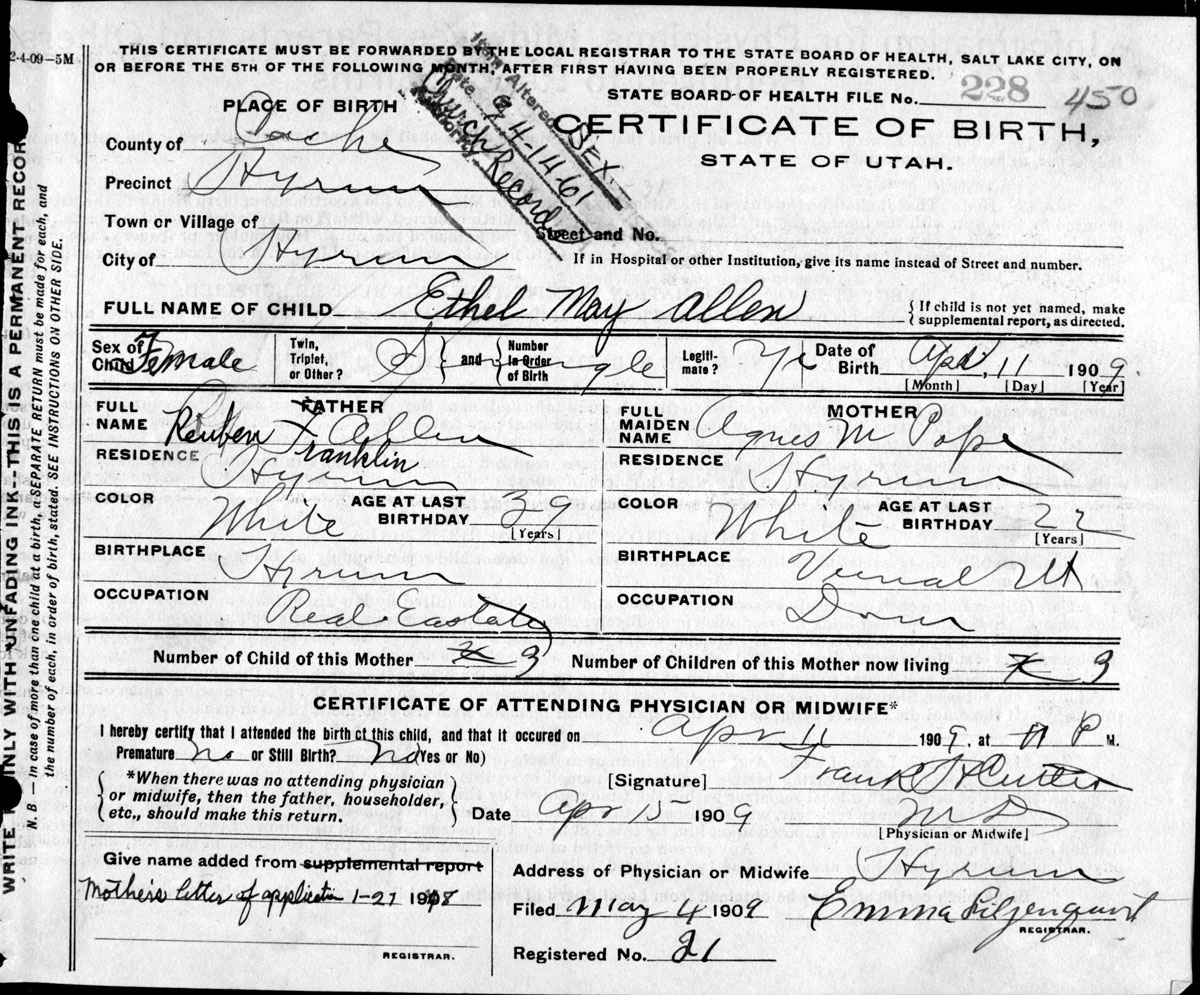 2-4-09-5M
THIS CERTIFICATE MUST BE FORWARDED BY THE LOCAL REGISTRAR TO THE STATE BOARD OF HEALTH, SALT LAKE CITY, ON
OR BEFORE THE 5TH OF THE FOLLOWING MONTH, AFTER FIRST HAVING BEEN PROPERLY REGISTERED.
STATE BOARD OF HEALTH FILE No. 228 450
Item Altered SEX
Date 2-4-1461
Church Record
Authority
PLACE OF BIRTH
CERTIFICATE OF BIRTH,
STATE OF UTAH.
County of Cache
Precinct Hyrum
Town or Village of
Street and No.
City of Hyrum
If in Hospital or other Institution, give its name instead of Street and number.
FULL NAME OF CHILD Ethel May Allen
{If child is not yet named, make
supplemental report, as directed.
Sex of Child Female
Twin, Triplet, or Other? Single and Number in Order of Birth
Legitimate? Yes
Date of Birth Apr 11 1909
[Month] [Day] [Year]
FATHER
FULL NAME Reuben F Allen
Franklin
RESIDENCE Hyrum
COLOR White AGE AT LAST BIRTHDAY 39
[Years]
BIRTHPLACE Hyrum
OCCUPATION Real Eastate
MOTHER
FULL MAIDEN NAME Agnes M Pope
RESIDENCE Hyrum
COLOR White AGE AT LAST BIRTHDAY 22
[Years]
BIRTHPLACE Vernal Ut
OCCUPATION Dom
Number of Child of this Mother 3
Number of Children of this Mother now living 3
CERTIFICATE OF ATTENDING PHYSICIAN OR MIDWIFE*
I hereby certify that I attended the birth of this child, and that it occured on Apr 11 1909, at 11 P M.
Premature No or Still Birth? No (Yes or No)
{*When there was no attending physician
or midwife, then the father, householder,
etc., should make this return.}
[Signature] Frank H Cutler
Date Apr 15 1909
M D
[Physician or Midwife]
Give name added from supplemental report
Mother's letter of application 1-27 1918
REGISTRAR.
Address of Physician or Midwife Hyrum
Filed May 4 1909 Emma Liljenquist
REGISTRAR.
Registered No. 21
WRITE PLAINLY WITH UNFADING INK-THIS IS A PERMANENT RECORD
N. B. — In case of more than one child at a birth, a SEPARATE RETURN must be made for each, and
the number of each, in order of birth, stated. SEE INSTRUCTIONS ON OTHER SIDE.